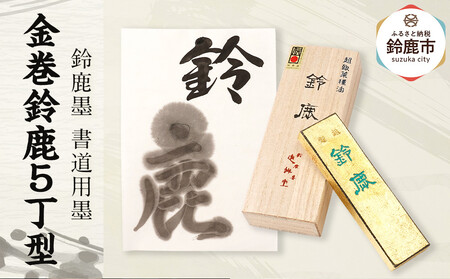 金巻鈴鹿5丁型
鈴鹿墨 書道用墨
鈴
鹿
鈴鹿
鈴鹿
ふるさと納税
鈴鹿市
suzuka city